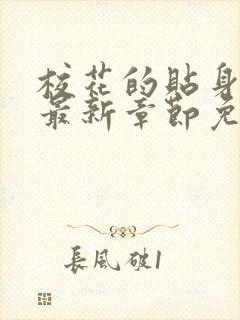 校花的貼身
最新章節免
長風破1